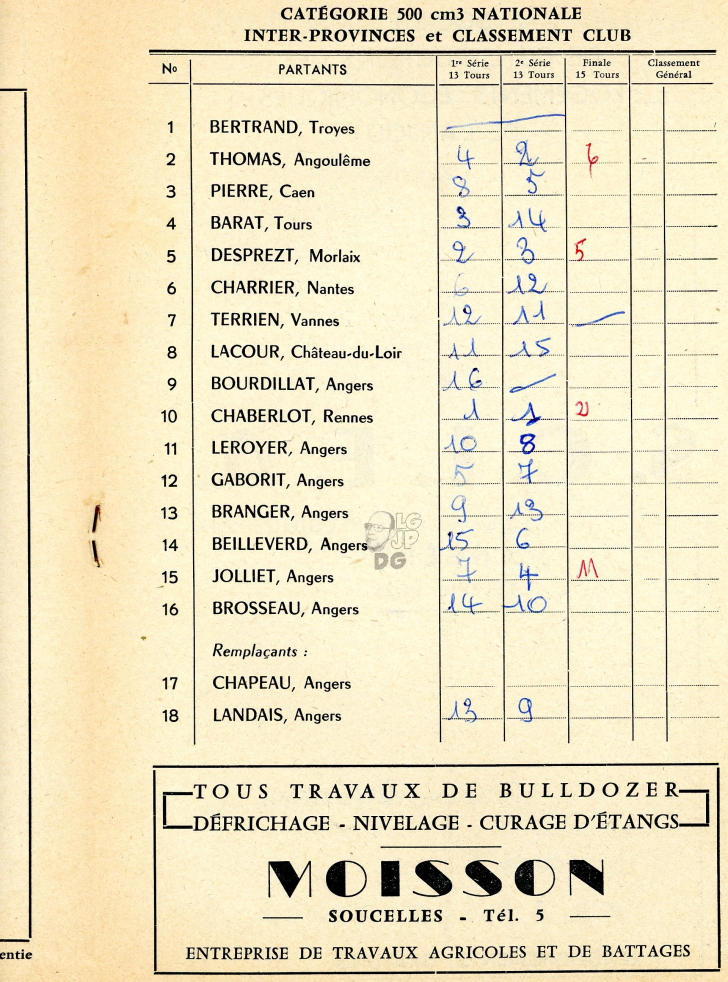 CATÉGORIE 500 cm3 NATIONALE
INTER-PROVINCES et CLASSEMENT CLUB
No PARTANTS 1re Série 13 Tours 2e Série 13 Tours Finale 15 Tours Classement Général
1 BERTRAND, Troyes
2 THOMAS, Angoulême 4 2 6
3 PIERRE, Caen 8 5
4 BARAT, Tours 3 14
5 DESPREZT, Morlaix 2 3 5
6 CHARRIER, Nantes 6 12
7 TERRIEN, Vannes 12 11 —
8 LACOUR, Château-du-Loir 11 15
9 BOURDILLAT, Angers 16 —
10 CHABERLOT, Rennes 1 1 2
11 LEROYER, Angers 10 8
12 GABORIT, Angers 5 7
13 BRANGER, Angers 9 13
14 BEILLEVERD, Angers 15 6
15 JOLLIET, Angers 7 4 11
16 BROSSEAU, Angers 14 10
Remplaçants :
17 CHAPEAU, Angers
18 LANDAIS, Angers 13 9
LG
JP
DG
TOUS TRAVAUX DE BULLDOZER
DÉFRICHAGE - NIVELAGE - CURAGE D'ÉTANGS
MOISSON
SOUCELLES - Tél. 5
ENTREPRISE DE TRAVAUX AGRICOLES ET DE BATTAGES
entie